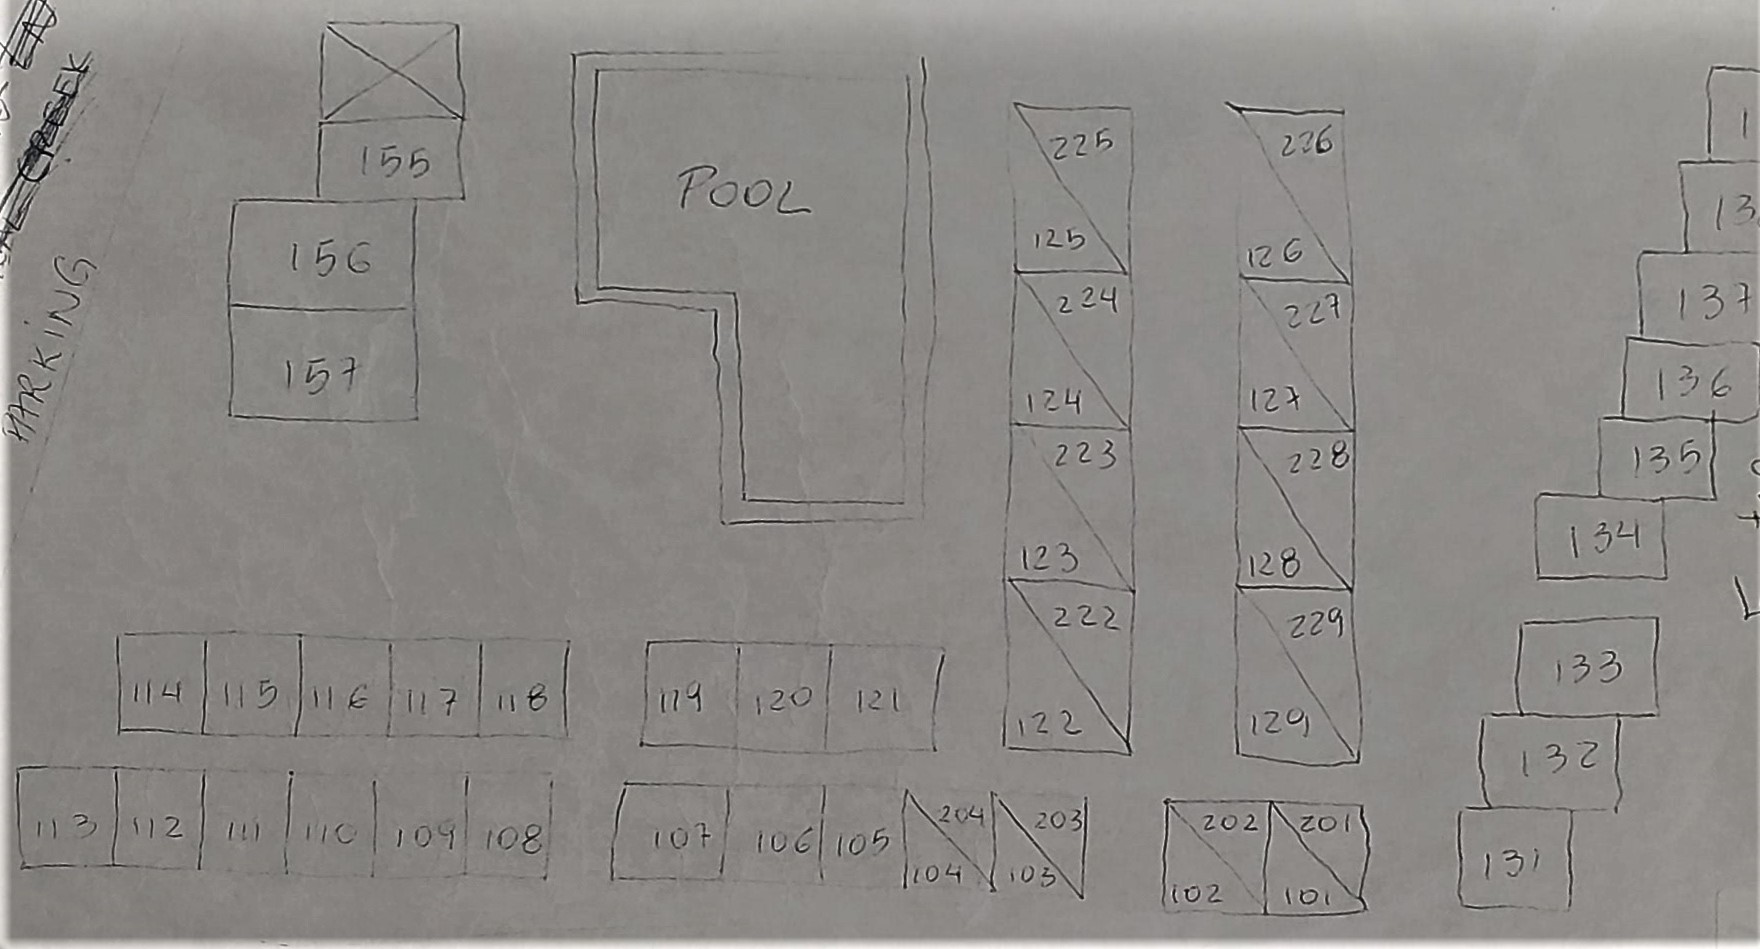 155
156
157
PARKING
POOL
225
125
224
124
223
123
222
122
226
126
227
127
228
128
229
129
137
136
135
134
133
132
131
114 115 116 117 118
119 120 121
113 112 111 110 109 108
107 106 105
204 203
104 103
202 201
102 101